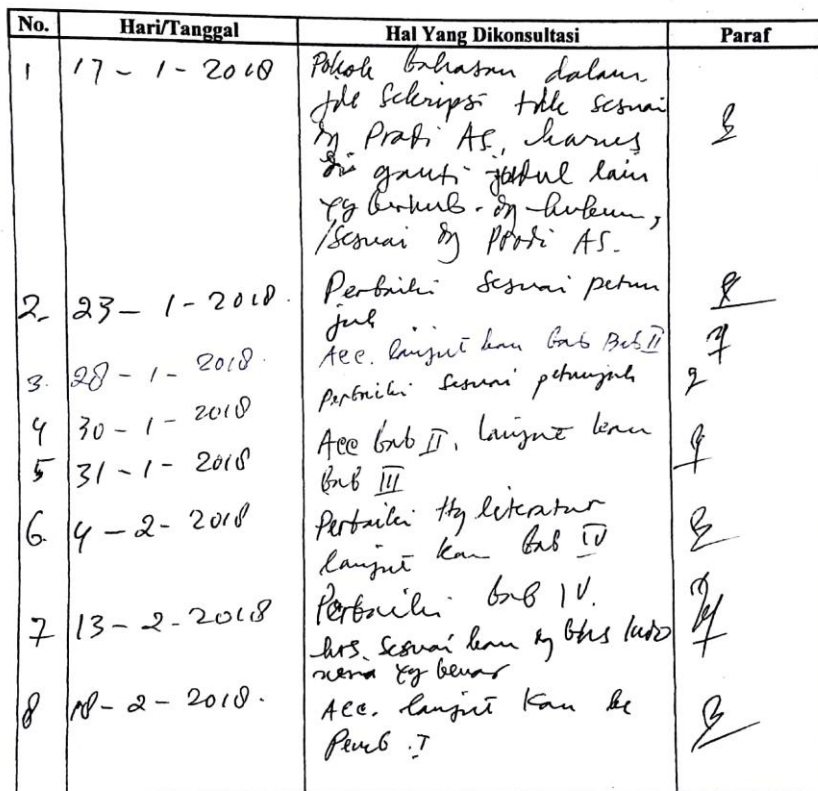 No. Hari/Tanggal Hal Yang Dikonsultasi Paraf
1 17-1-2018 Pokok bahasan dalam
jdl Sekripsi tdk sesuai
dg Prodi AS, harus
di ganti judul lain
yg berhub. dg hukum,
/sesuai dg Prodi AS.
2. 23-1-2018. Perbaiki sesuai petun
juk
3. 28-1-2018. Acc. lanjut kan bab Bab II
4 30-1-2018 perbaiki sesuai petunjuk
5 31-1-2018 Acc bab II, lanjut kan
bab III
6. 4-2-2018 Perbaiki ttg literatur
lanjut kan bab IV
7 13-2-2018 Perbaiki bab IV.
hrs. sesuai kan dg bhs Indo
nesia yg benar
8 18-2-2018. Acc. lanjut kan ke
Pemb. I